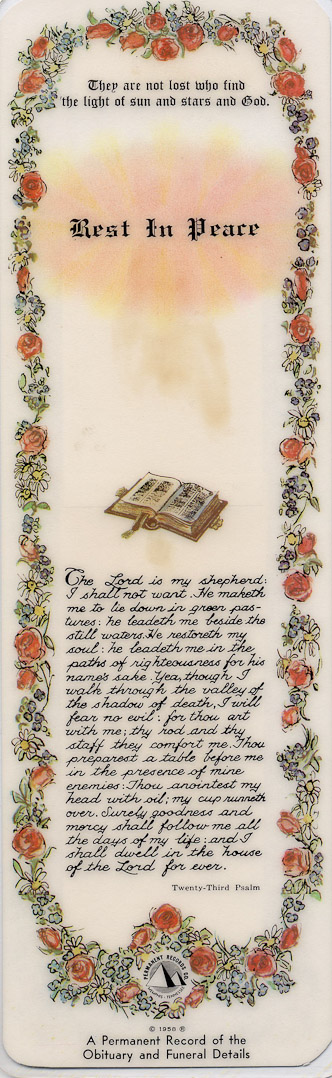 They are not lost who find
the light of sun and stars and God.
Rest In Peace
The Lord is my shepherd:
I shall not want. He maketh
me to lie down in green pas-
tures: he leadeth me beside the
still waters. He restoreth my
soul: he leadeth me in the
paths of righteousness for his
name's sake. Yea, though I
walk through the valley of
the shadow of death, I will
fear no evil: for thou art
with me; thy rod and thy
staff they comfort me. Thou
preparest a table before me
in the presence of mine
enemies: Thou anointest my
head with oil; my cup runneth
over. Surely goodness and
mercy shall follow me all
the days of my life: and I
shall dwell in the house
of the Lord for ever.
Twenty-Third Psalm
PERMANENT RECORD CO.
© 1956 ®
A Permanent Record of the
Obituary and Funeral Details